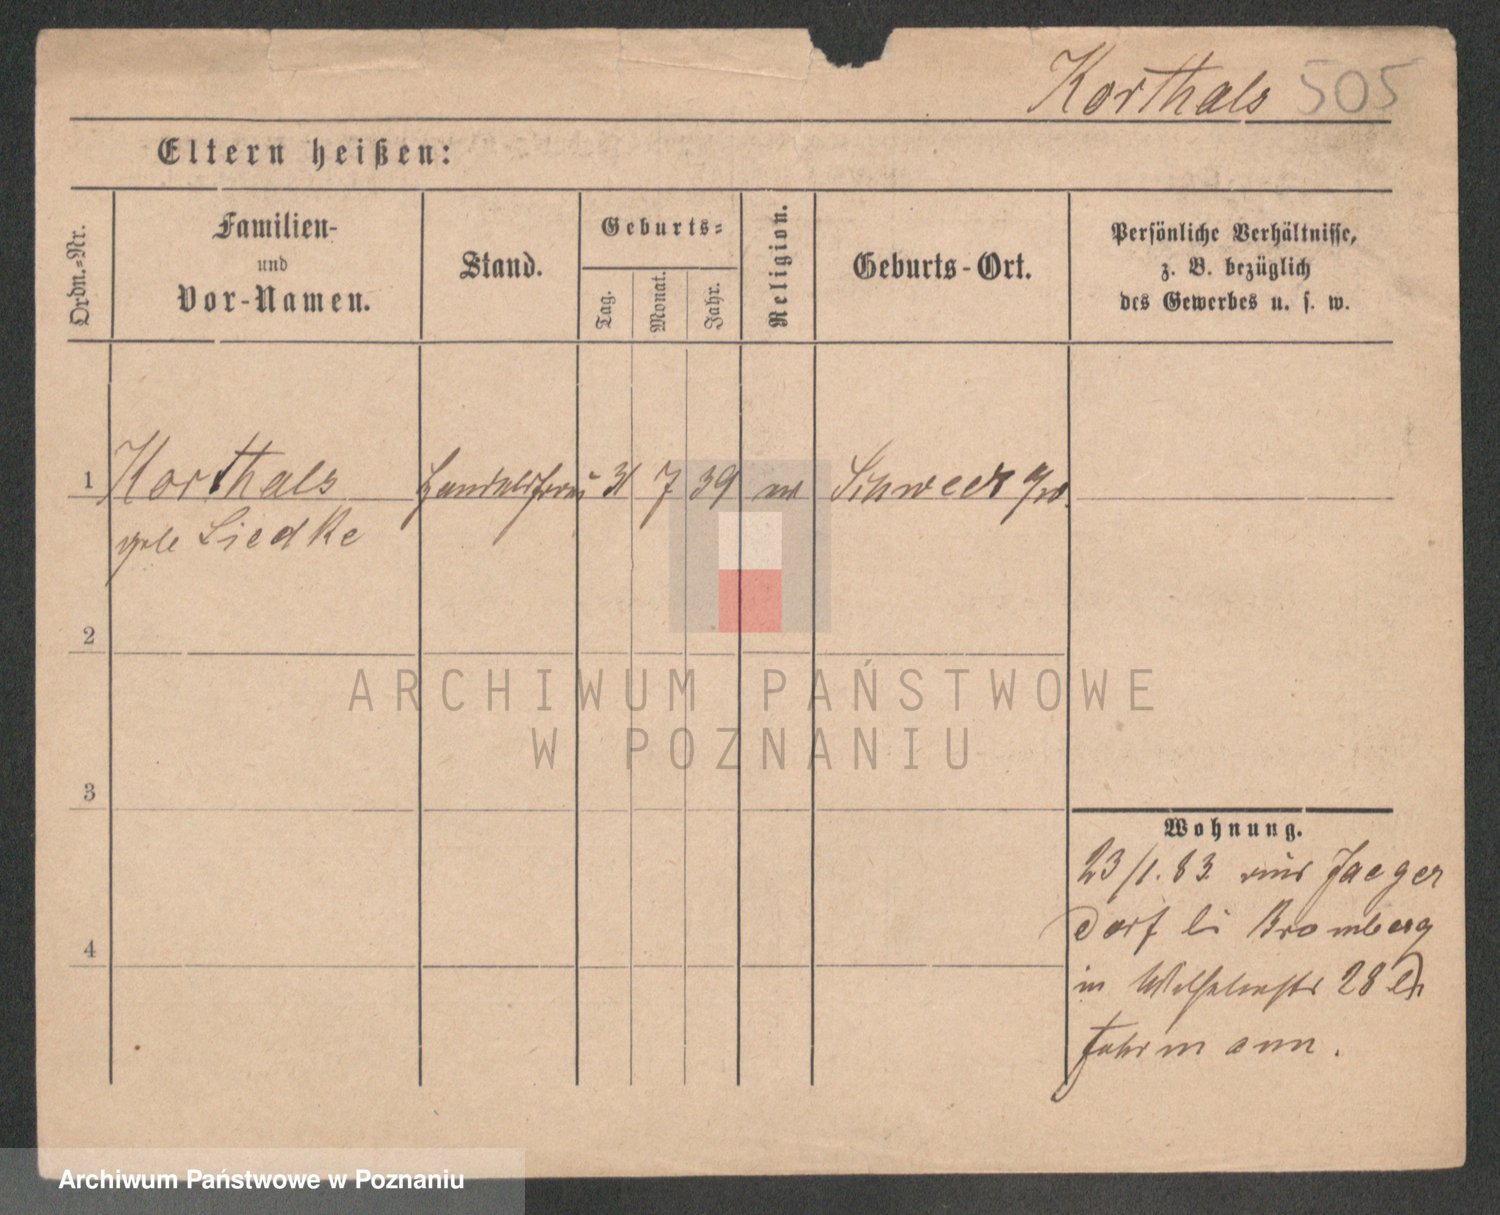 Korthals 505
Eltern heißen:
Ordn.=Nr.
Familien-
und
Vor-Namen.
Stand.
Geburts=
Tag.
Monat.
Jahr.
Religion.
Geburts-Ort.
Persönliche Verhältnisse,
z. B. bezüglich
des Gewerbes u. s. w.
1 Korthals Handelsfrau 31 7 39
geb Liedke
2
3
4
Wohnung.
23/1. 83. aus Jaeger
dorf bei Bromberg
in 28
Fuhrmann.
ARCHIWUM PAŃSTWOWE
W POZNANIU
Archiwum Państwowe w Poznaniu